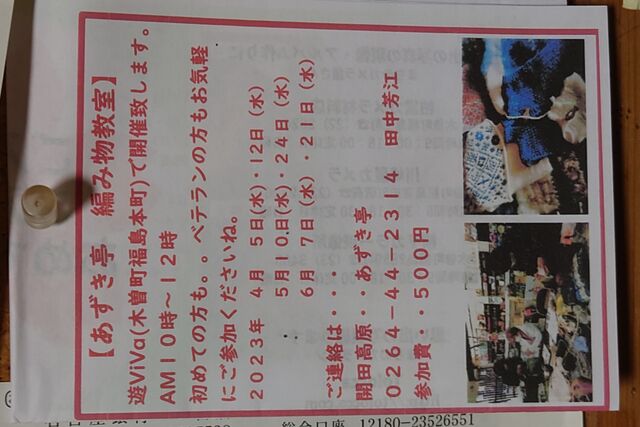 【あずき亭　編み物教室】
遊ViVa(木曽町福島本町)で開催致します。
AM10時～12時
初めての方も。。ベテランの方もお気軽
にご参加くださいね。
2023年　4月　5日(水)・12日（水）
5月10日(水)・24日（水）
6月　7日（水）・21日（水）
ご連絡は・・・
開田高原・・あずき亭
0264-44-2314　田中芳江
参加費・500円
総合口座　12180-23526551